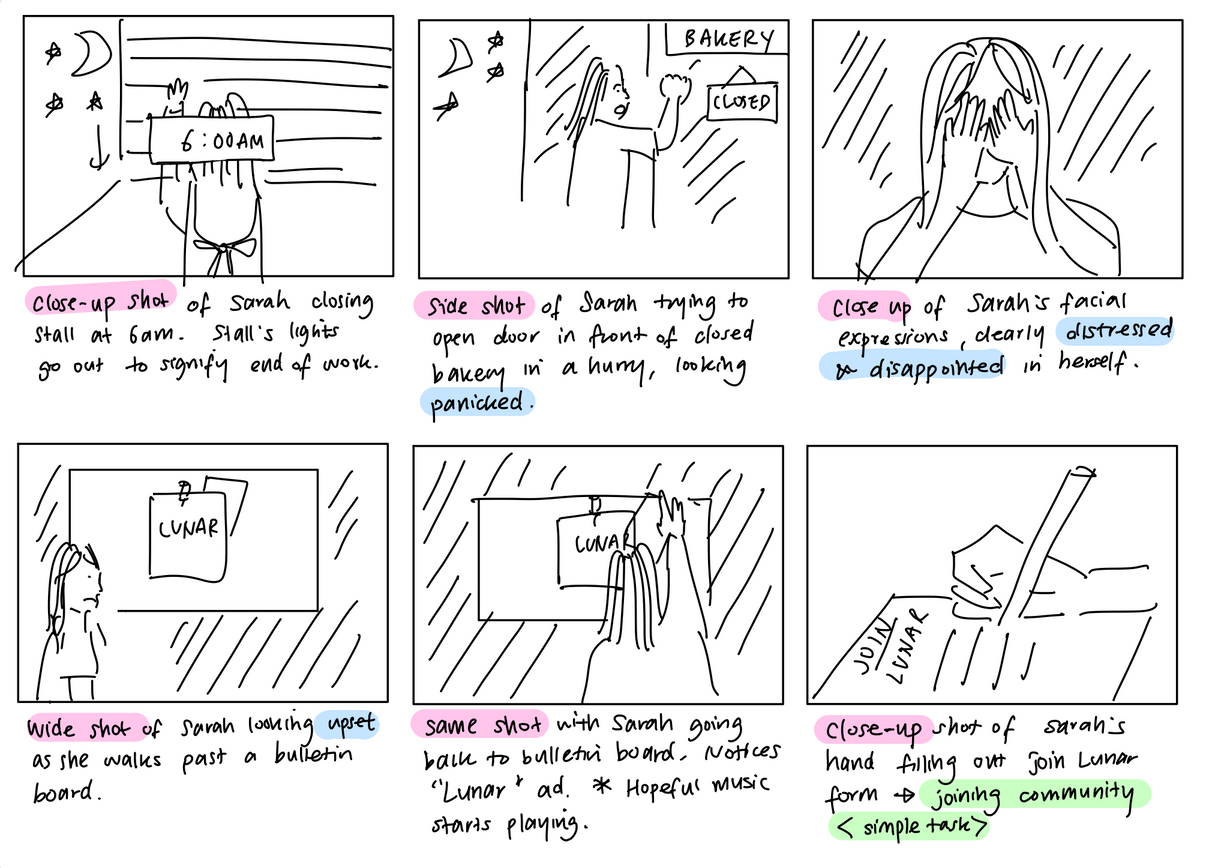 6:00AM
close-up shot of Sarah closing
stall at 6am. Stall's lights
go out to signify end of work.
BAKERY
CLOSED
side shot of Sarah trying to
open door in front of closed
bakery in a hurry, looking
panicked.
close up of Sarah's facial
expressions, clearly distressed
& disappointed in herself.
LUNAR
wide shot of Sarah looking upset
as she walks past a bulletin
board.
LUNAR
same shot with Sarah going
back to bulletin board. Notices
"Lunar" ad. * Hopeful music
starts playing.
JOIN
LUNAR
close-up shot of Sarah's
hand filling out join Lunar
form → joining community
< simple task >